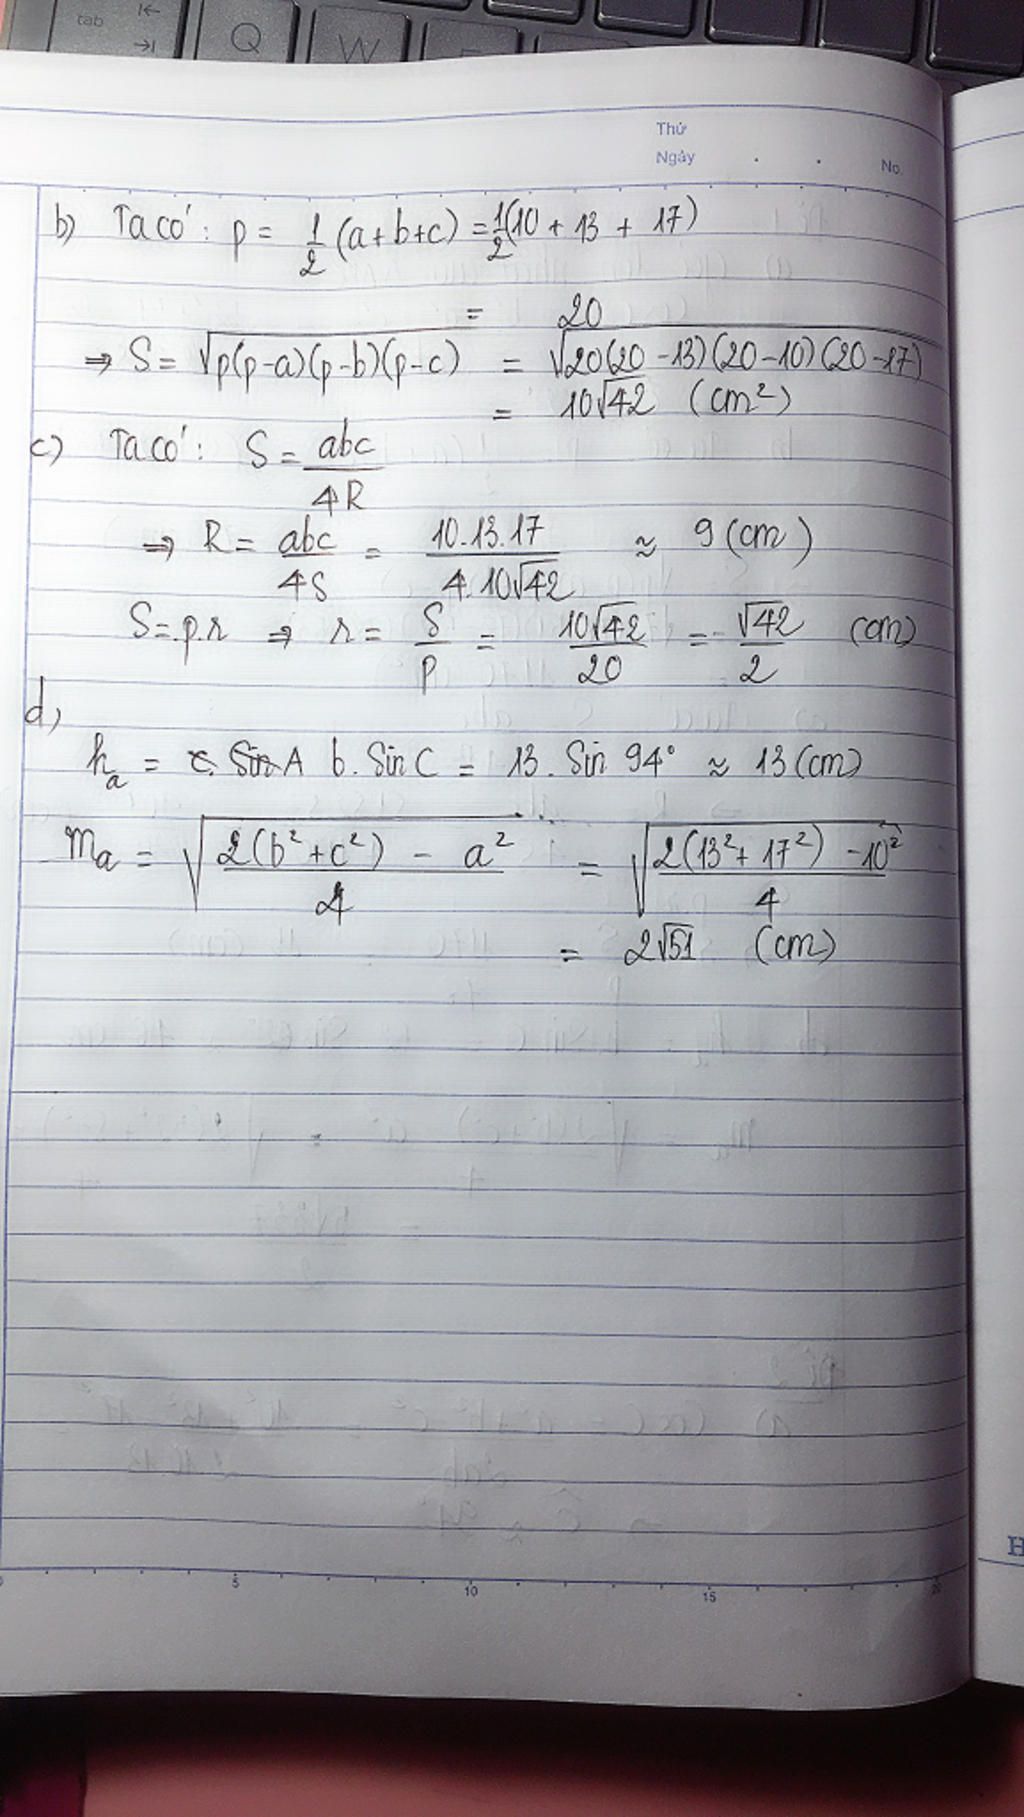 tab
Q
W
Thứ
Ngày . . No.
b) Ta có: p = 1/2 (a+b+c) = 1/2(10 + 13 + 17)
= 20
⇒ S = √(p(p-a)(p-b)(p-c)) = √(20(20-13)(20-10)(20-17))
= 10√42 (cm²)
c) Ta có: S = abc/4R
⇒ R = abc/4S = 10.13.17/4.10√42 ≈ 9 (cm)
S = p.r ⇒ r = S/p = 10√42/20 = √42/2 (cm)
d,
hₐ = c. Sin A b. Sin C = 13. Sin 94° ≈ 13 (cm)
mₐ = √((2(b²+c²) - a²)/4) = √((2(13²+17²) - 10²)/4)
= 2√51 (cm)
5 10 15
H